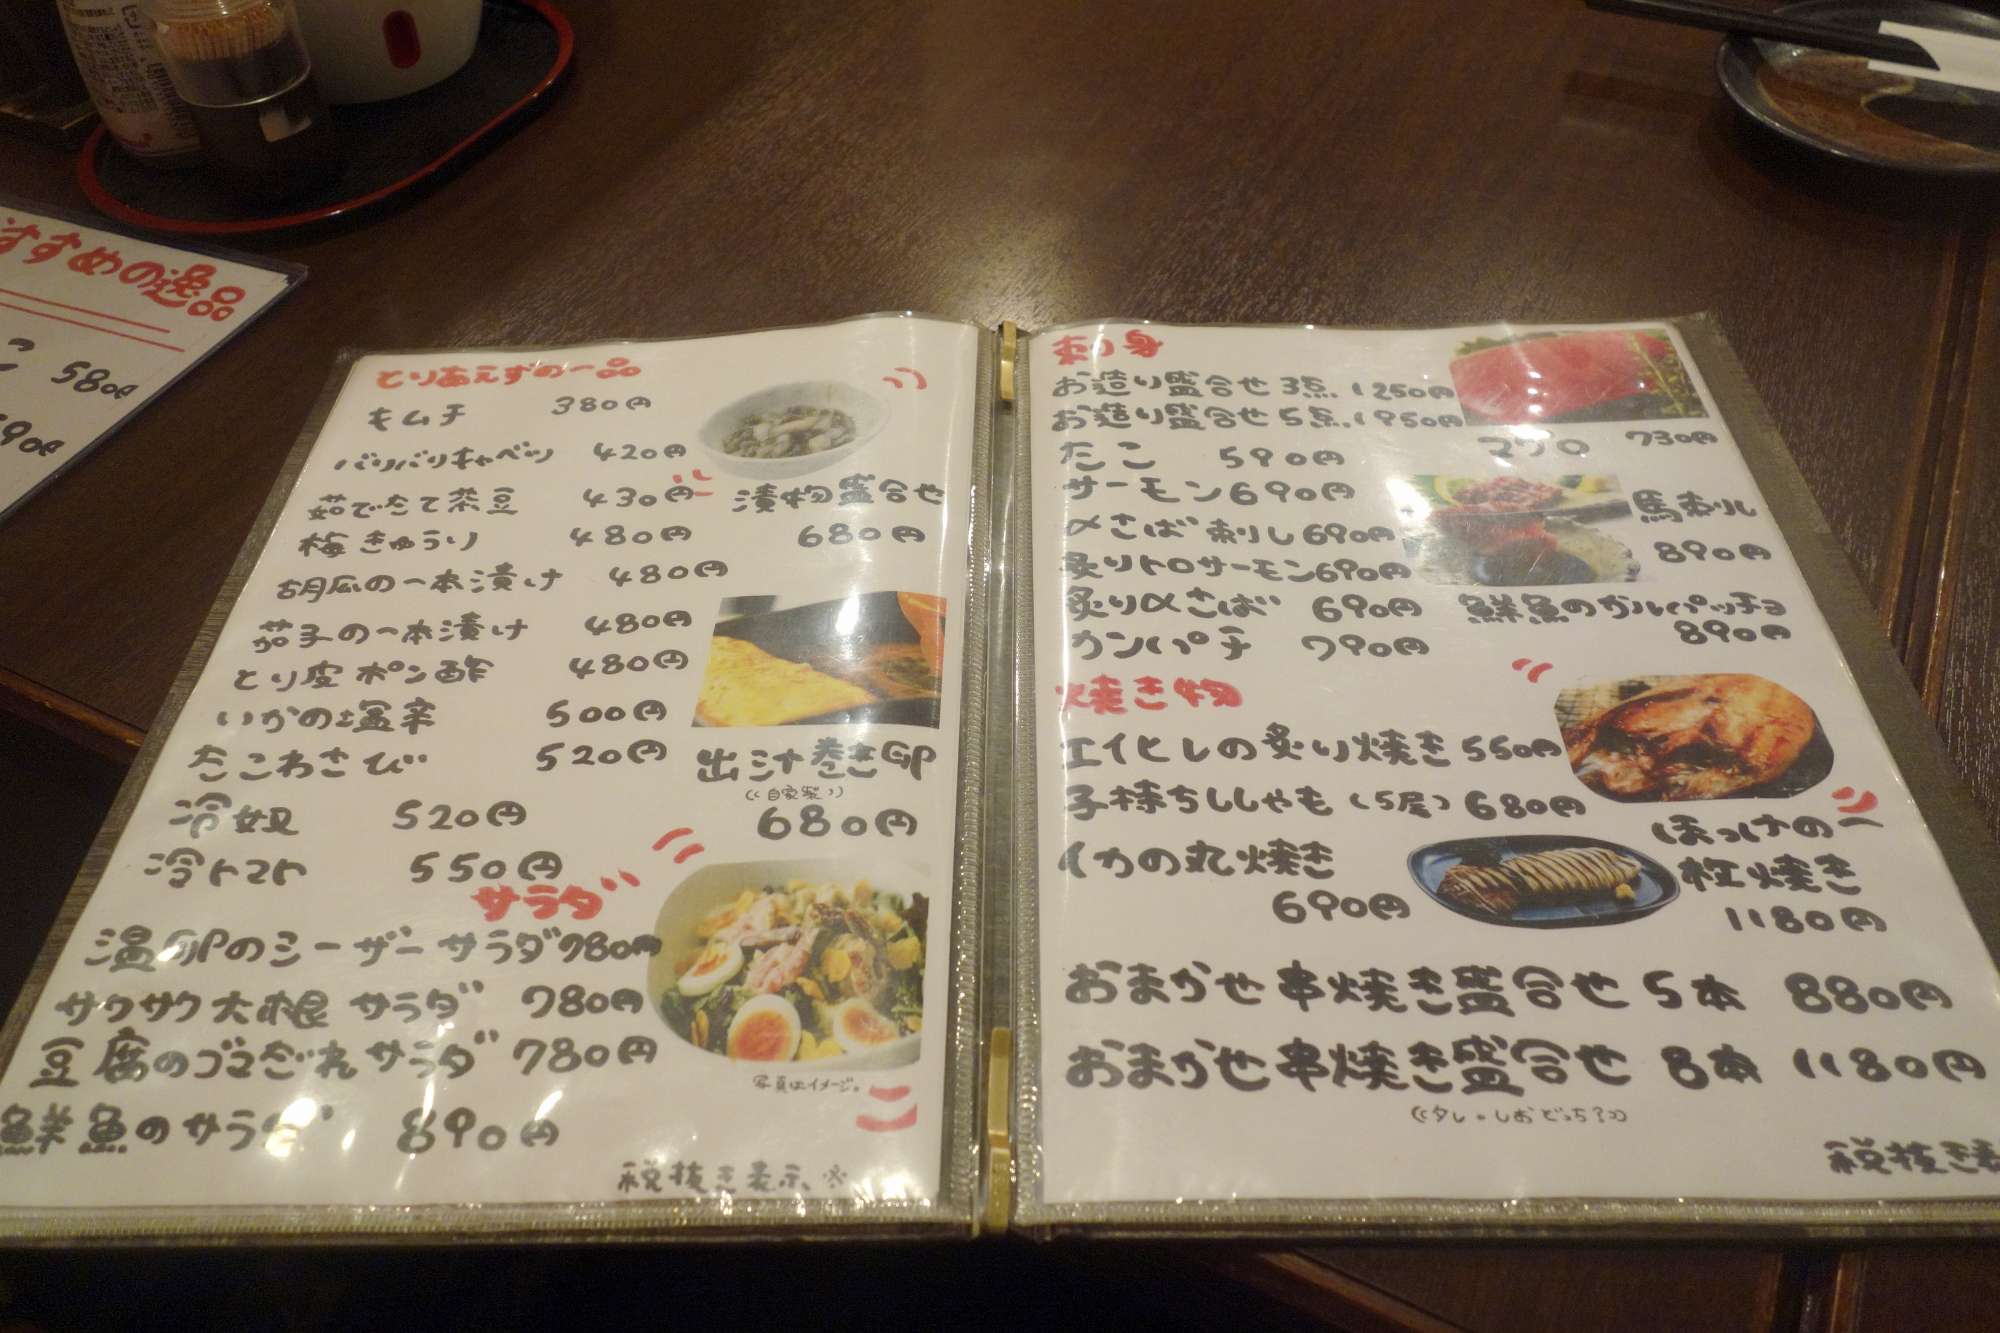 すすめの逸品
580円
とりあえずの一品
キムチ 380円
バリバリキャベツ 420円
茹でたて茶豆 430円
梅きゅうり 480円
胡瓜の一本漬け 480円
茄子の一本漬け 480円
とり皮ポン酢 480円
いかの塩辛 500円
たこわさび 520円
冷奴 520円
冷トマト 550円
漬物盛合せ
680円
出汁巻き卵
((自家製))
680円
サラダ
温卵のシーザーサラダ 780円
サクサク大根サラダ 780円
豆腐のゴマだれサラダ 780円
鮮魚のサラダ 890円
写真はイメージ。
税抜き表示※
刺身
お造り盛合せ3点 1250円
お造り盛合せ5点 1950円
たこ 590円
サーモン 690円
〆さば刺し 690円
炙りトロサーモン 690円
炙り〆さば 690円
カンパチ 790円
マグロ 730円
馬刺し
890円
鮮魚のカルパッチョ
890円
焼き物
エイヒレの炙り焼き 550円
子持ちししゃも(5尾) 680円
イカの丸焼き
690円
ほっけの一
枚焼き
1180円
おまかせ串焼き盛合せ 5本 880円
おまかせ串焼き盛合せ 8本 1180円
((タレ・しおどっち?))
税抜き表